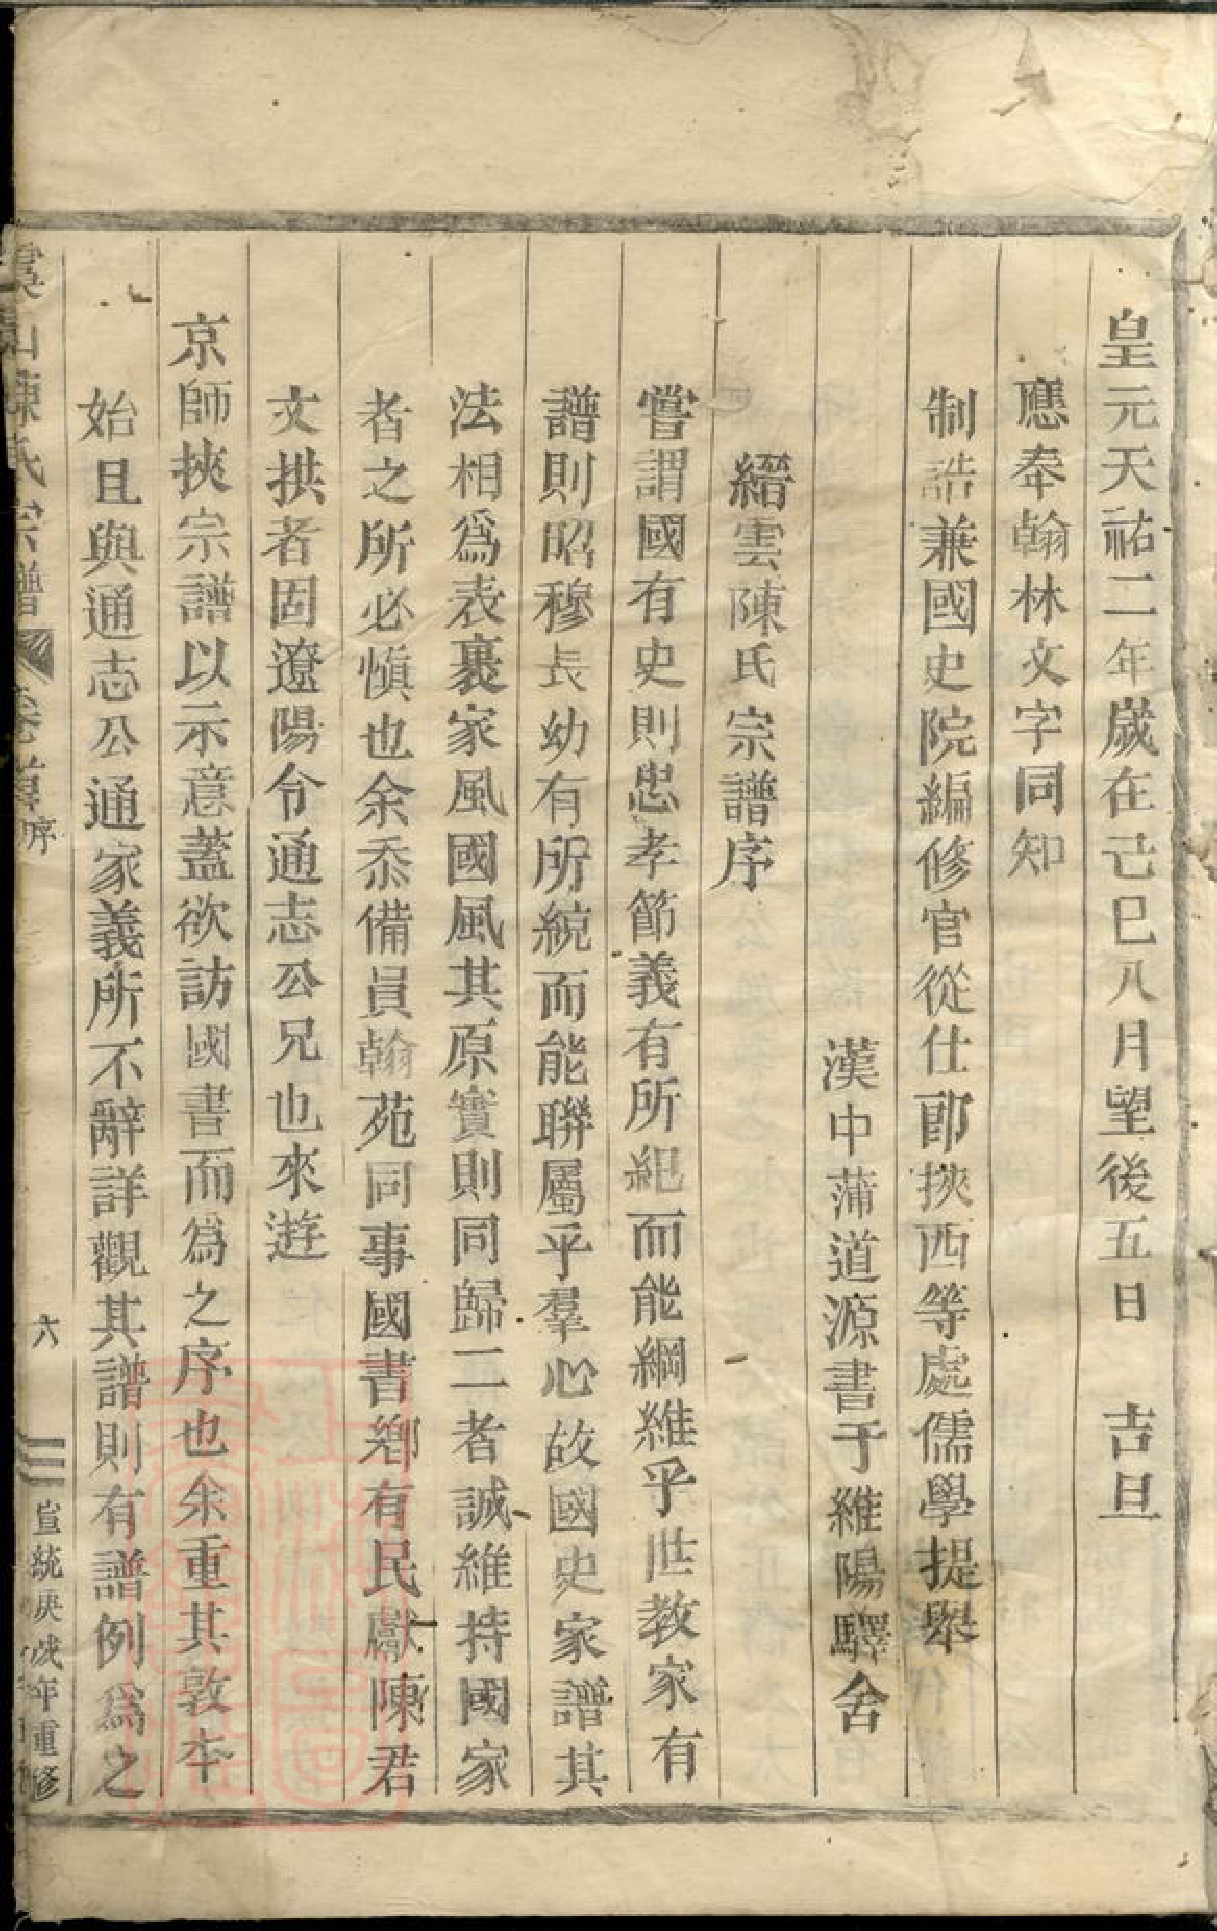 皇元天祐二年歲在己巳八月望後五日　吉旦
應奉翰林文字同知
制誥兼國史院編修官從仕郎挾西等處儒學提舉
漢中蒲道源書于維陽驛舍
縉雲陳氏宗譜序
嘗謂國有史則忠孝節義有所紀而能綱維乎世教家有
譜則昭穆長幼有所統而能聯屬乎羣心故國史家譜其
法相爲表裏家風國風其原實則同歸二者誠維持國家
者之所必慎也余忝備員翰苑同事國書鄉有民獻陳君
文拱者固遼陽令通志公兄也來遊
京師挾宗譜以示意蓋欲訪國書而爲之序也余重其敦本
始且與通志公通家義所不辭詳觀其譜則有譜例爲之
山陳氏宗譜 卷首 序 六 宣統庚戌年重修